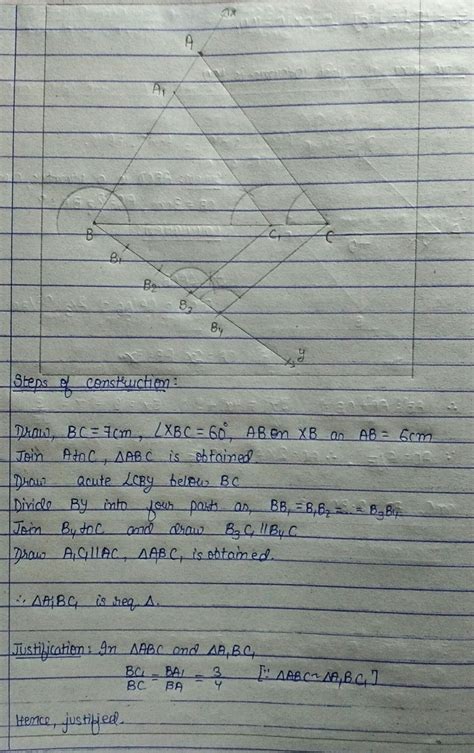 x
A
A₁
B
C₁
C
B₁
B₂
B₃
B₄
y
Steps of construction:
Draw, BC = 7cm, ∠XBC = 60°, AB on XB as AB = 6cm
Join A to C, ΔABC is obtained.
Draw acute ∠CBY below BC
Divide BY into four parts as, BB₁ = B₁B₂ = .. = B₃B₄
Join B₄ to C and draw B₃C₁ || B₄C
Draw A₁C₁ || AC, ΔA₁BC₁ is obtained.
∴ ΔA₁BC₁ is req. Δ.
Justification: In ΔABC and ΔA₁BC₁
BC₁/BC = BA₁/BA = 3/4 [∵ ΔABC ~ ΔA₁BC₁]
Hence, justified.